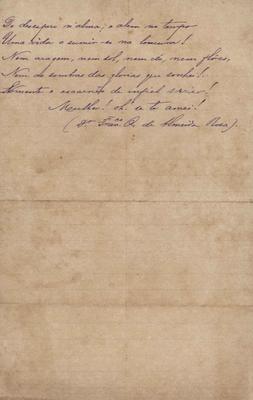 De desespero n'alma, e alem no tempo
Uma vida a sumir-se na loucura!
Nem aragem, nem sol, nem do, nem flôres,
Nem da sombra das glorias que sonhei!
Sómente o escarneo de infiel sorriso!
Mulher! oh! se te amei!
(Dr. Franco. O. de Almeida Rosa).